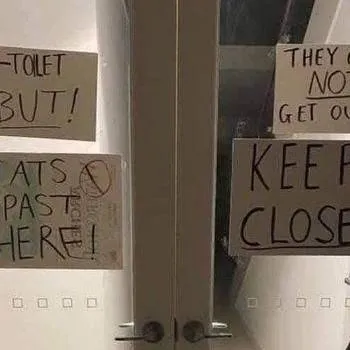 -TOILET
BUT!
ATS
PAST
HERE!
THEY
NOT
GET OU
KEEP
CLOSE